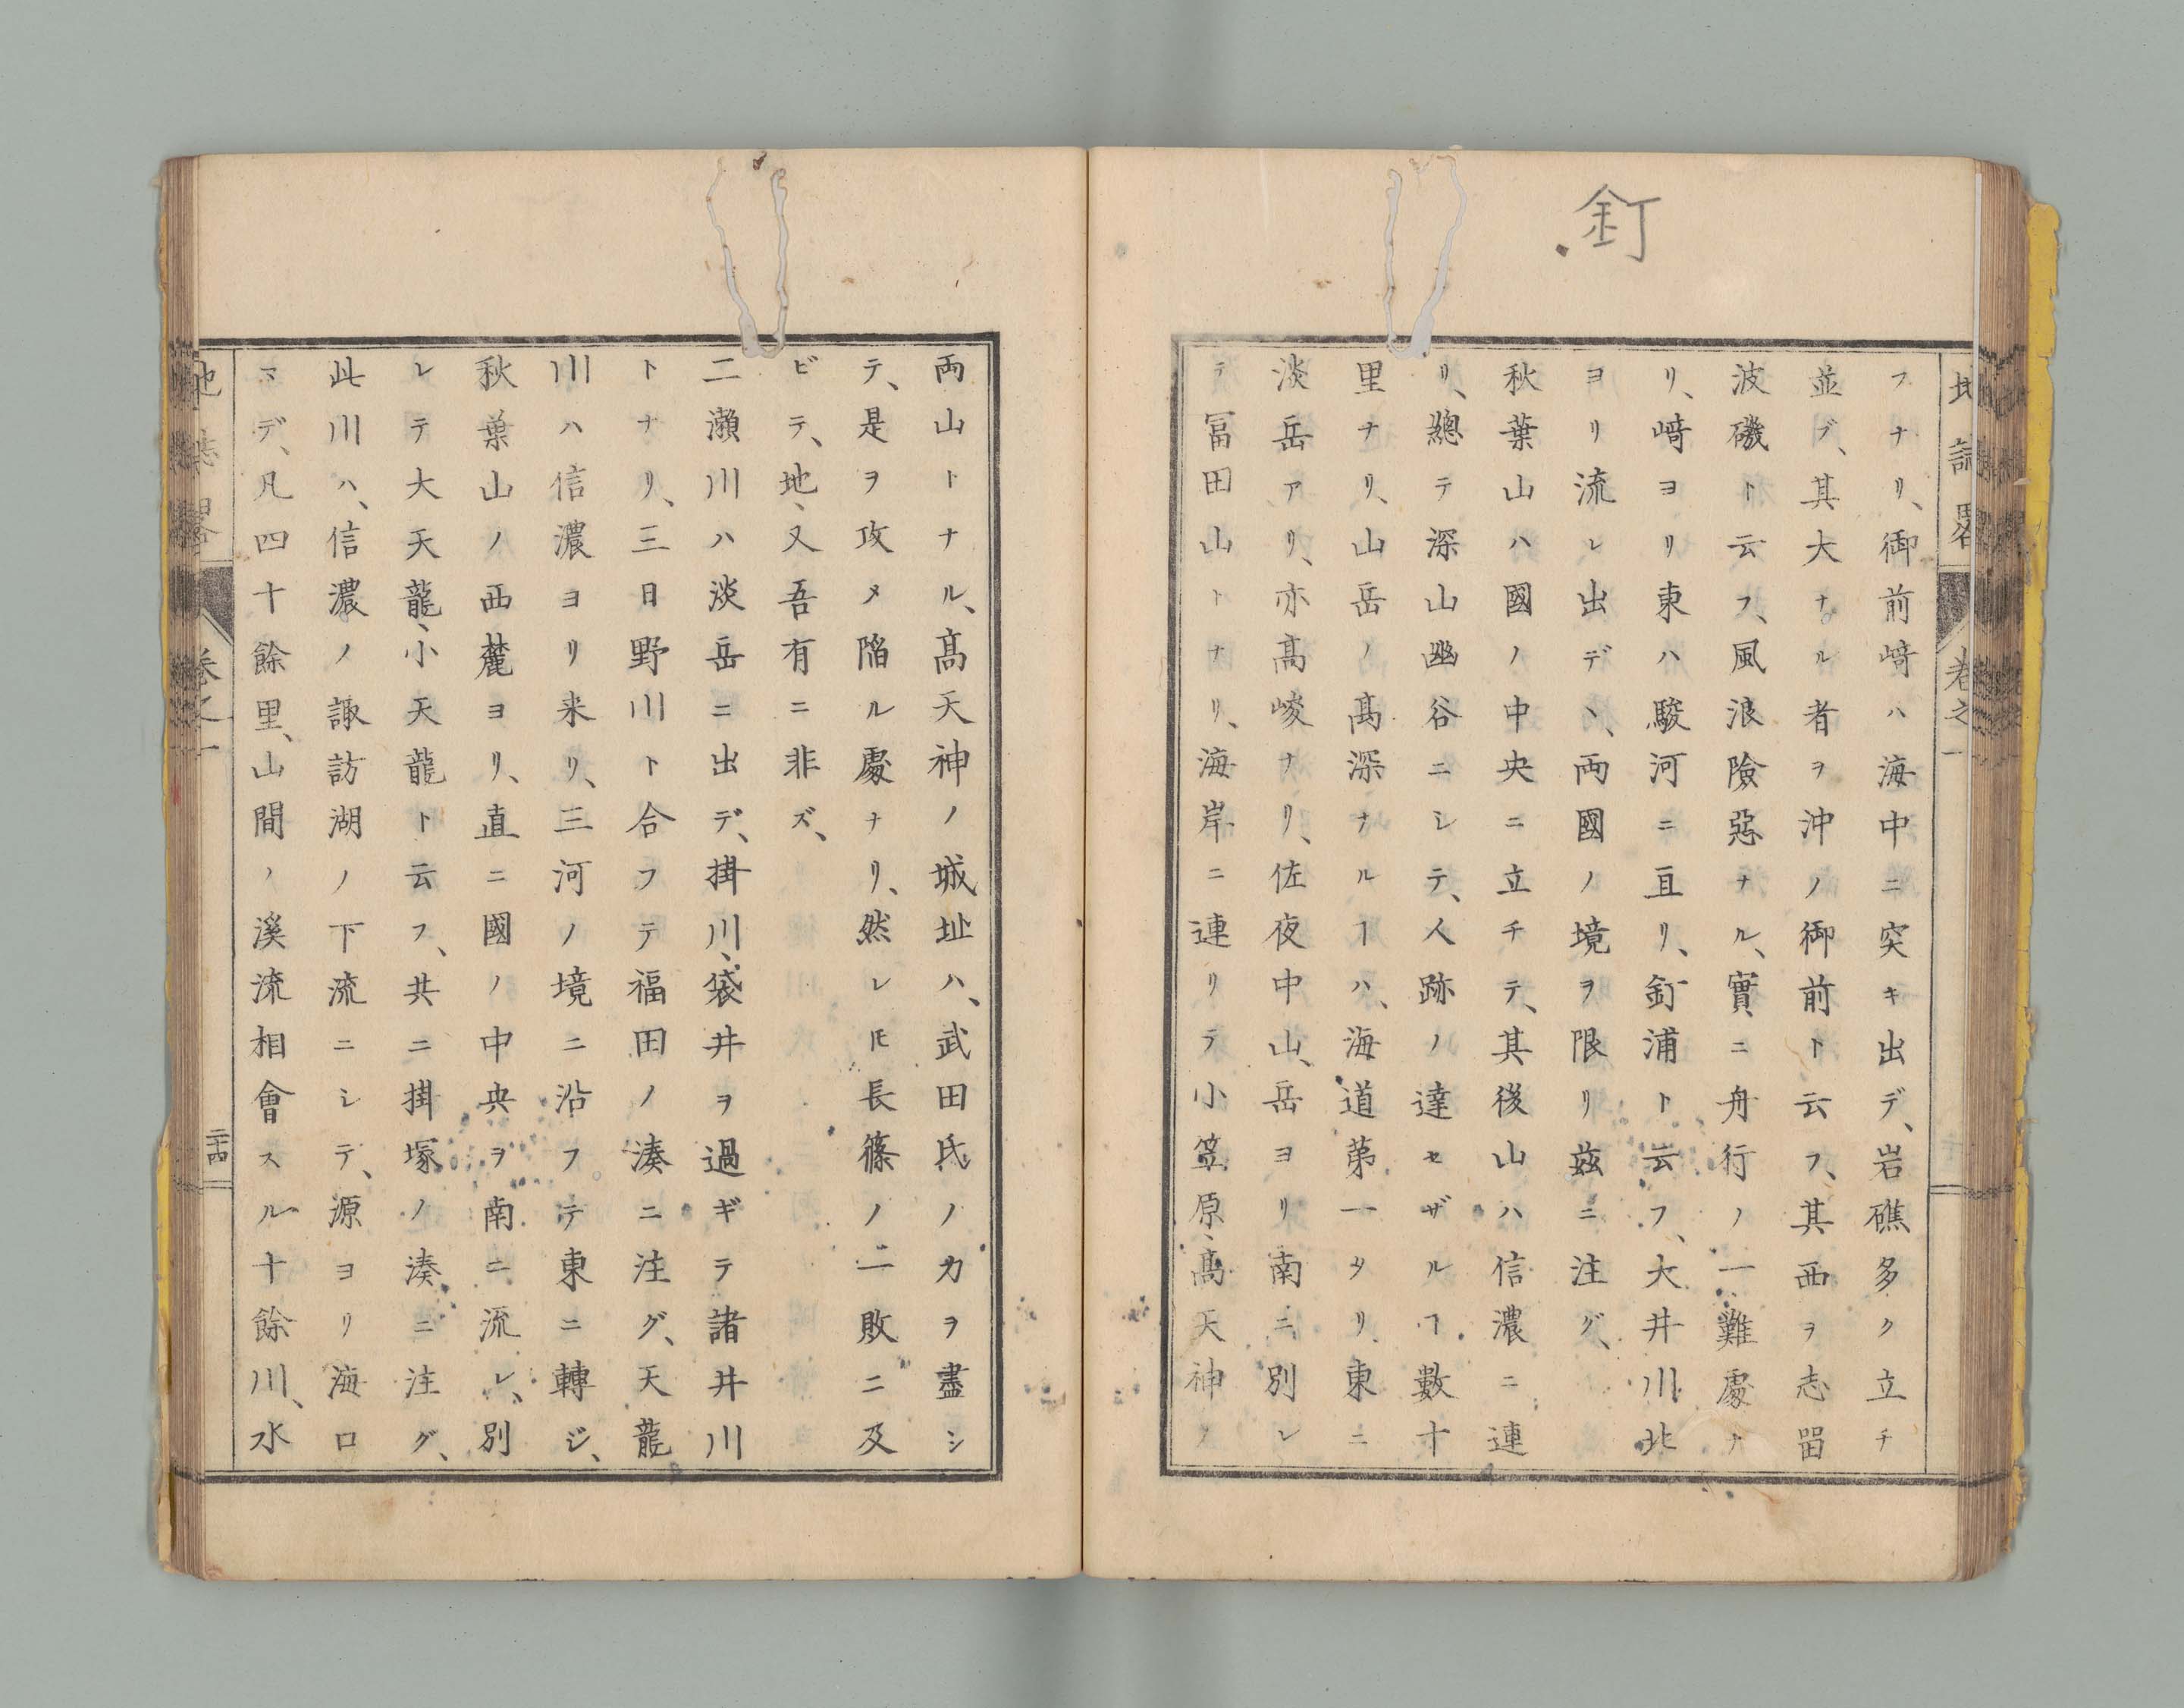 釘
地誌畧 卷之一
フナリ、御前﨑ハ海中ニ突キ出デ、岩礁多ク立チ
並ブ、其大ナル者ヲ沖ノ御前ト云フ、其西ヲ志留
波磯ト云フ、風浪險惡ナル、實ニ舟行ノ一難處ナ
リ、﨑ヨリ東ハ駿河ニ亘リ、釘浦ト云フ、大井川北
ヨリ流レ出デヽ、両國ノ境ヲ限リ茲ニ注グ、
秋葉山ハ國ノ中央ニ立チテ、其後山ハ信濃ニ連
リ、總テ深山幽谷ニシテ、人跡ノ達セザルヿ數十
里ナリ、山岳ノ髙深ナルヿハ、海道第一タリ、東ニ
淡岳アリ、亦髙峻ナリ、佐夜中山、岳ヨリ南ニ別レ
テ冨田山トナリ、海岸ニ連リテ小笠原、髙天神ノ
両山トナル、髙天神ノ城址ハ、武田氏ノ力ヲ盡シ
テ、是ヲ攻メ陥ル處ナリ、然レ𪜈長篠ノ一敗ニ及
ビテ、地、又吾有ニ非ズ、
二瀬川ハ淡岳ニ出デ、掛川、袋井ヲ過ギテ諸井川
トナリ、三日野川ト合フテ福田ノ湊ニ注グ、天龍
川ハ信濃ヨリ来リ、三河ノ境ニ沿フテ東ニ轉ジ、
秋葉山ノ西麓ヨリ、直ニ國ノ中央ヲ南ニ流レ、別
レテ大天龍、小天龍ト云フ、共ニ掛塚ノ湊ニ注グ、
此川ハ、信濃ノ諏訪湖ノ下流ニシテ、源ヨリ海口
マデ、凡四十餘里、山間ノ溪流相會スル十餘川、水
地誌畧 卷之一 二十四